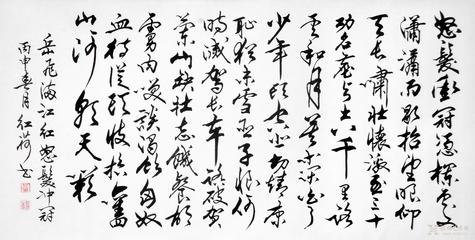 怒髮衝冠憑欄處
瀟瀟雨歇抬望眼仰
天長嘯壯懷激烈三十
功名塵與土八千里路
雲和月莫等閒白了
少年頭空悲切靖康
恥猶未雪臣子恨何
時滅駕長車踏破賀
蘭山缺壯志饑餐胡
虜肉笑談渴飲匈奴
血待從頭收拾舊
山河朝天闕
岳飛滿江紅怒髮冲冠
丙申春月紅荷書